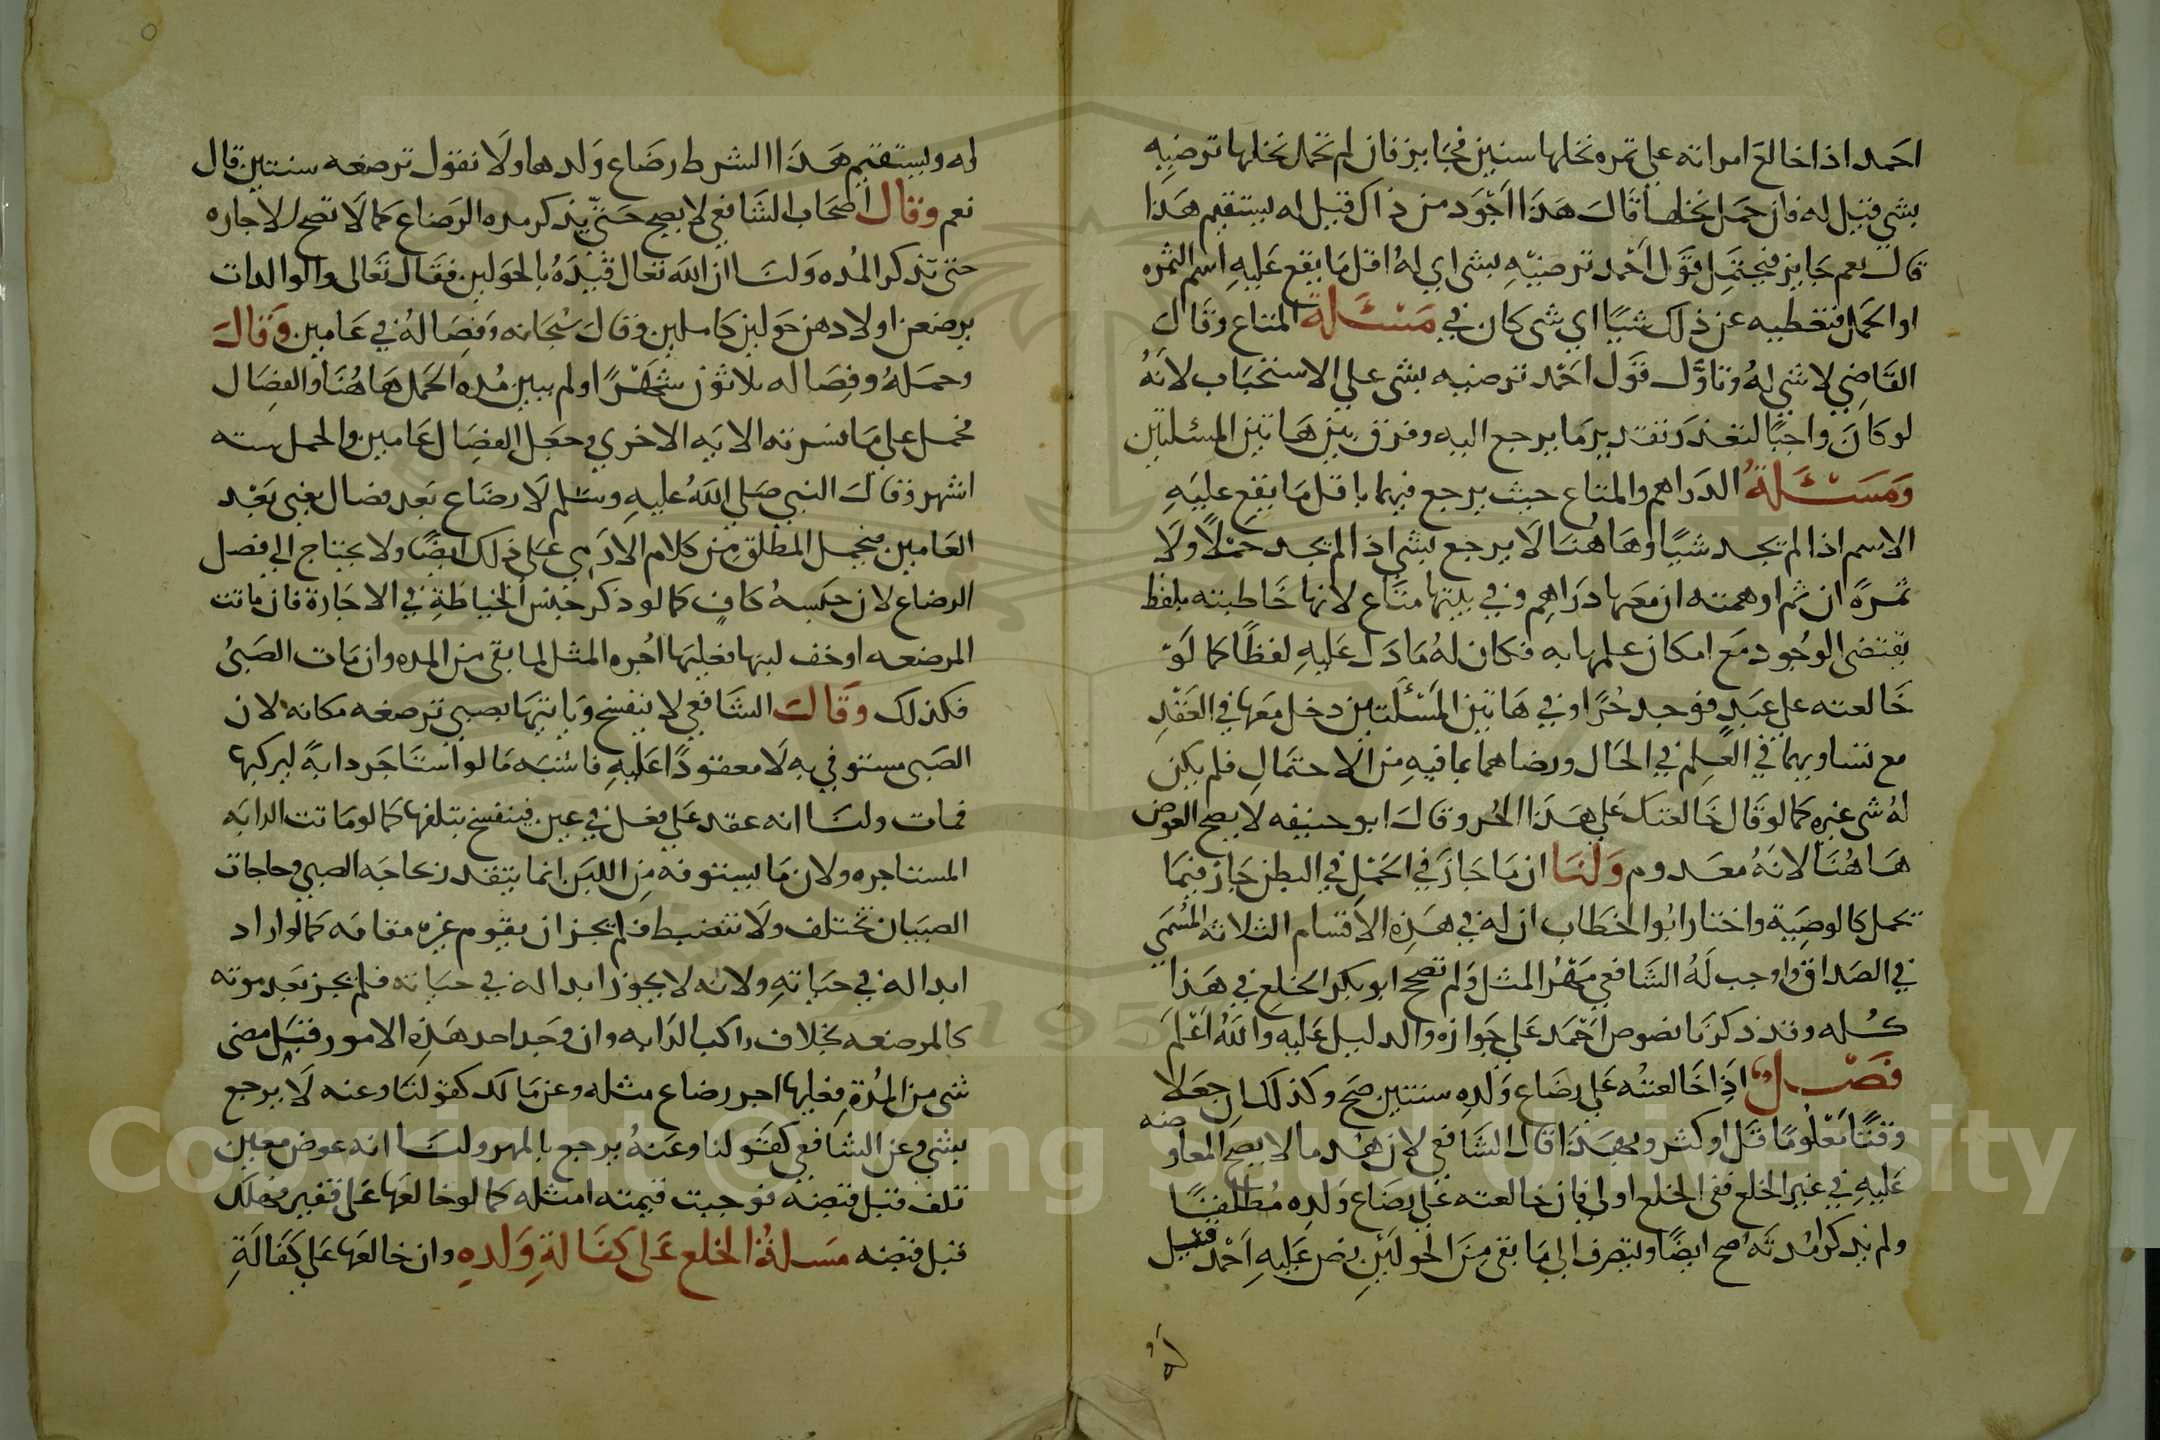 احمد اذا خالع امراته على ثمره نخلها سنين فجايز فان لم تحمل نخلها ترضيه
بشي قيل له فان حمل نخلها قال هذا اجود من ذاك قيل له يستقيم هذا
قال نعم جايز فيحتمل قول احمد ترضيه بشي اي له اقل ما يقع عليه اسم الثمره
او الحمل فتعطيه عن ذلك شيا اي شي كان في مسئلة المتاع وقال
القاضي لا شي له وتاول قول احمد ترضيه بشي على الاستحباب لانه
لو كان واجبا لتقدر تقدير ما يرجع اليه وفرق بين هاتين المسئلتين
ومسئلة الدراهم والمتاع حيث يرجع فيهما باقل ما يقع عليه
الاسم اذا لم يجد شيا وهاهنا لا يرجع بشي اذا لم يجد حملا ولا
ثمرة ان ثم اوهمته ان معها دراهم وفي بيتها متاع لانها خاطبته بلفظ
يقتضي الوجود مع امكان علمها به فكان له ما دل عليه لفظا كما لو
خالعته على عبد فوجد حرا وفي هاتين المسئلتين دخل معها في العقد
مع تساويهما في العلم في الحال ورضاهما بما فيه من الاحتمال فلم يكن
له شي غيره كما لو قال خالعتك على هذا الحر وقال ابو حنيفه لا يصح العوض
هاهنا لانه معدوم ولنا ان ما جاز في الحمل في البطن جاز فيما
تحمل كالوصية واختار ابو الخطاب ان له في هذه الاقسام الثلاثه المسمى
في الصداق واوجب له الشافعي مهر المثل ولم تصح ابو بكر الخلع في هذا
كله وقد ذكرنا نصوص احمد على جوازه والدليل عليه والله اعلم
فصل اذا خالعته على رضاع ولده سنتين صح وكذلك ان جعلا
وقتا معلوما قل او كثر وبهذا قال الشافعي لان هذا مما لا يصح المعاوضه
عليه في غير الخلع ففي الخلع اولى فان خالعته على رضاع ولده مطلقا
ولم يذكرا مدته صح ايضا وينصرف الى ما بقى من الحولين نص عليه احمد قيل
له
له ويستقيم هذا الشرط رضاع ولدها ولا نقول ترضعه سنتين قال
نعم وقال اصحاب الشافعي لا يصح حتى يذكر مده الرضاع كما لا تصح الاجاره
حتى تذكر المده ولنا ان الله تعالى قيده بالحولين فقال تعالى والوالدات
يرضعن اولادهن حولين كاملين وقال سبحانه وفصاله في عامين وقال
وحمله وفصاله ثلاثون شهرا ولم يبين مده الحمل هاهنا والفصال
فحمل على ما فسرته الايه الاخرى وجعل الفصال عامين والحمل سته
اشهر وقال النبي صلى الله عليه وسلم لا رضاع بعد فصال يعني بعد
العامين فيحمل المطلق من كلام الادمي على ذلك ايضا ولا يحتاج الى فصل
الرضاع لان جنسه كاف كما لو ذكر جنس الخياطة في الاجارة فان ماتت
المرضعه او جف لبنها فعليها اجره المثل لما بقى من المده وان مات الصبي
فكذلك وقال الشافعي لا ينفسخ وياتيها بصبي ترضعه مكانه لان
الصبي مستوفى به لا معقودا عليه فاشبه ما لو استاجر دابة ليركبها
فمات ولنا انه عقد على فعل في عين فينفسخ بتلفها كما لو ماتت الدابه
المستاجره ولان ما يستوفه من اللبن انما يتقدر بحاجه الصبي وحاجات
الصبيان تختلف ولا تنضبط فلم يجز ان يقوم غيره مقامه كما لو اراد
ابداله في حياته ولانه لا يجوز ابداله في حياته فلم يجز بعد موته
كالمرضعه بخلاف راكب الدابه وان وجد احد هذه الامور قبل مضى
شي من المدة فعليها اجر رضاع مثله وعن مالك كقولنا وعنه لا يرجع
بشي وعن الشافعي كقولنا وعنه يرجع بالمهر ولنا انه عوض معين
تلف قبل قبضه فوجبت قيمته او مثله كما لو خالعها على قفيز فهلك
قبل قبضه مسلة الخلع على كفالة ولده وان خالعها على كفالة
Copyright © King Saud University